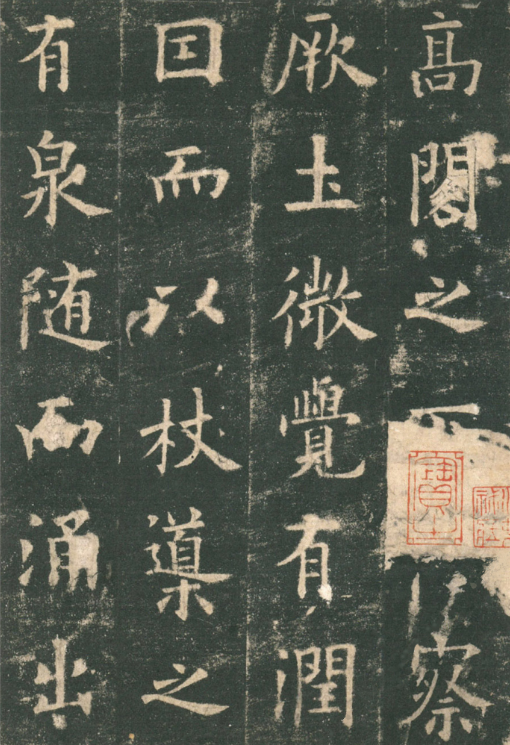 高閣之下察
厥土微覺有潤
因而以杖導之
有泉随而涌出